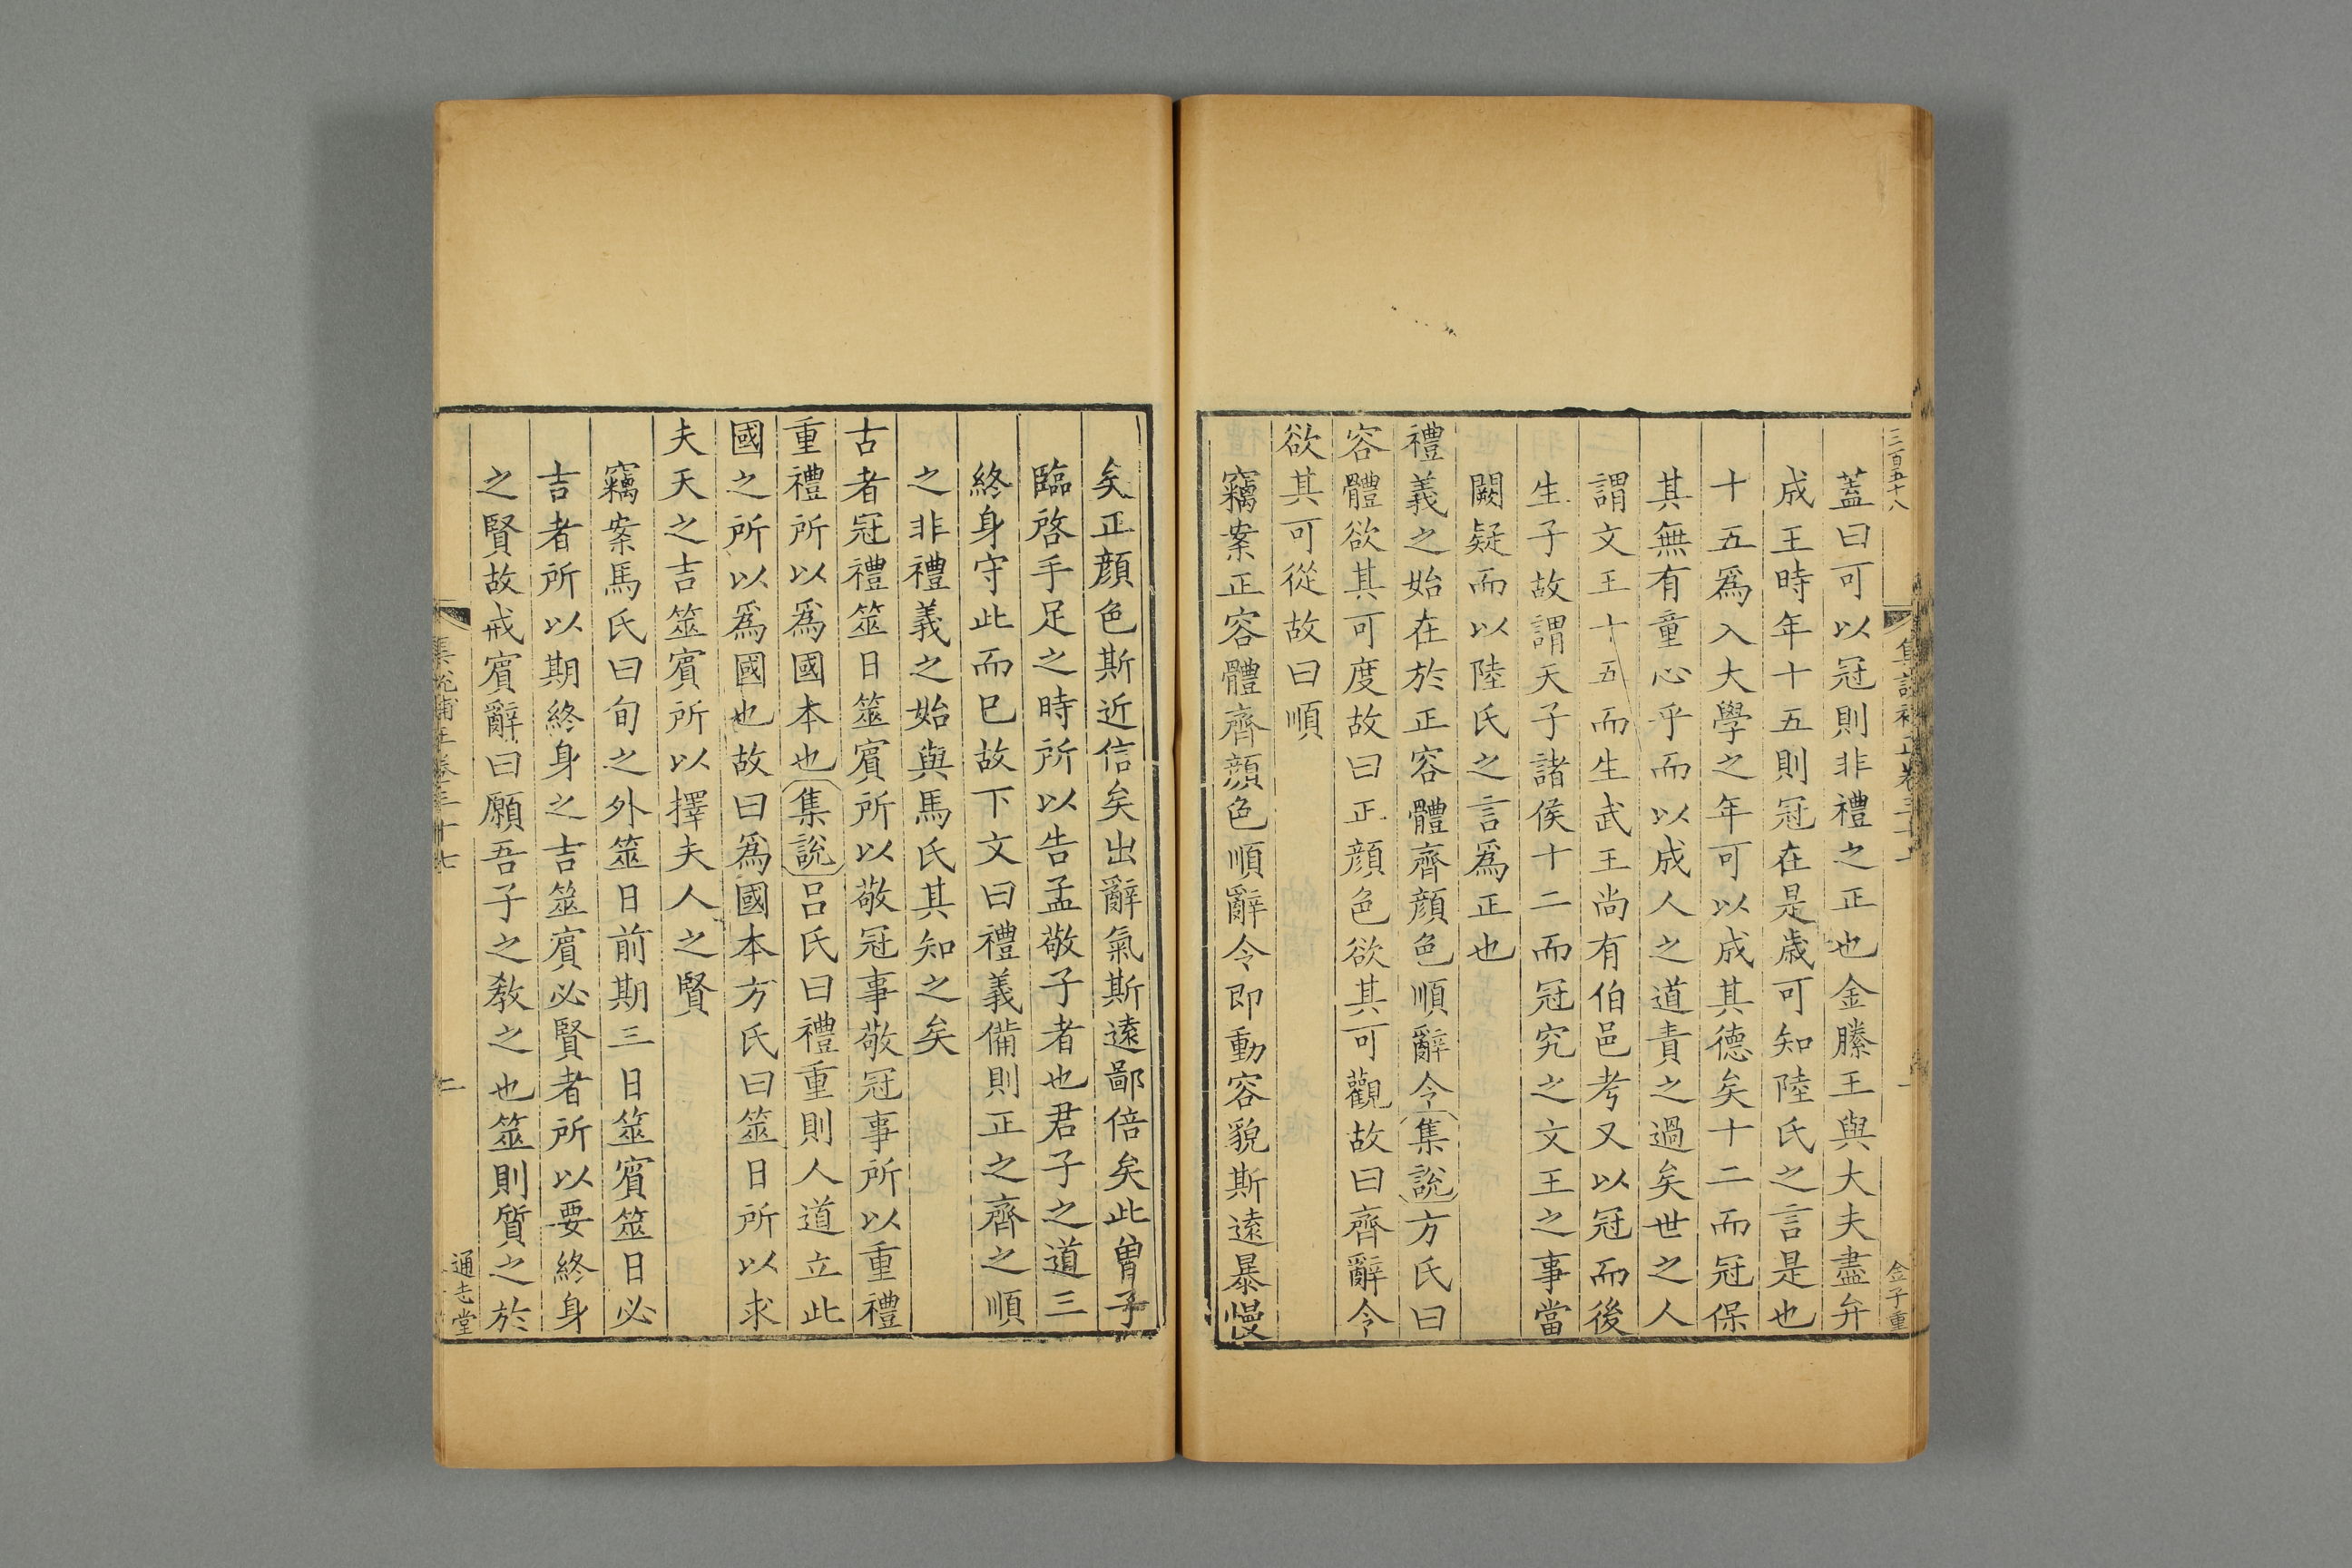 三百五十八
金子重
蓋曰可以冠則非禮之正也金縢王與大夫盡弁
成王時年十五則冠在是歳可知陸氏之言是也
十五爲入大學之年可以成其德矣十二而冠保
其無有童心乎而以成人之道責之過矣世之人
謂文王十五而生武王尚有伯邑考又以冠而後
生子故謂天子諸侯十二而冠究之文王之事當
闕疑而以陸氏之言爲正也
禮義之始在於正容體齊顔色順辭令集說方氏曰
容體欲其可度故曰正顔色欲其可觀故曰齊辭令
欲其可從故曰順
竊案正容體齊顔色順辭令即動容貌斯遠暴慢
矣正顔色斯近信矣出辭氣斯遠鄙倍矣此曾子
臨啓手足之時所以告孟敬子者也君子之道三
終身守此而已故下文曰禮義備則正之齊之順
之非禮義之始與馬氏其知之矣
古者冠禮筮日筮賓所以敬冠事敬冠事所以重禮
重禮所以爲國本也集說呂氏曰禮重則人道立此
國之所以爲國也故曰爲國本方氏曰筮日所以求
夫天之吉筮賓所以擇夫人之賢
竊案馬氏曰旬之外筮日前期三日筮賓筮日必
吉者所以期終身之吉筮賓必賢者所以要終身
之賢故戒賓辭曰願吾子之教之也筮則質之於
集說補正卷三十七
二
通志堂